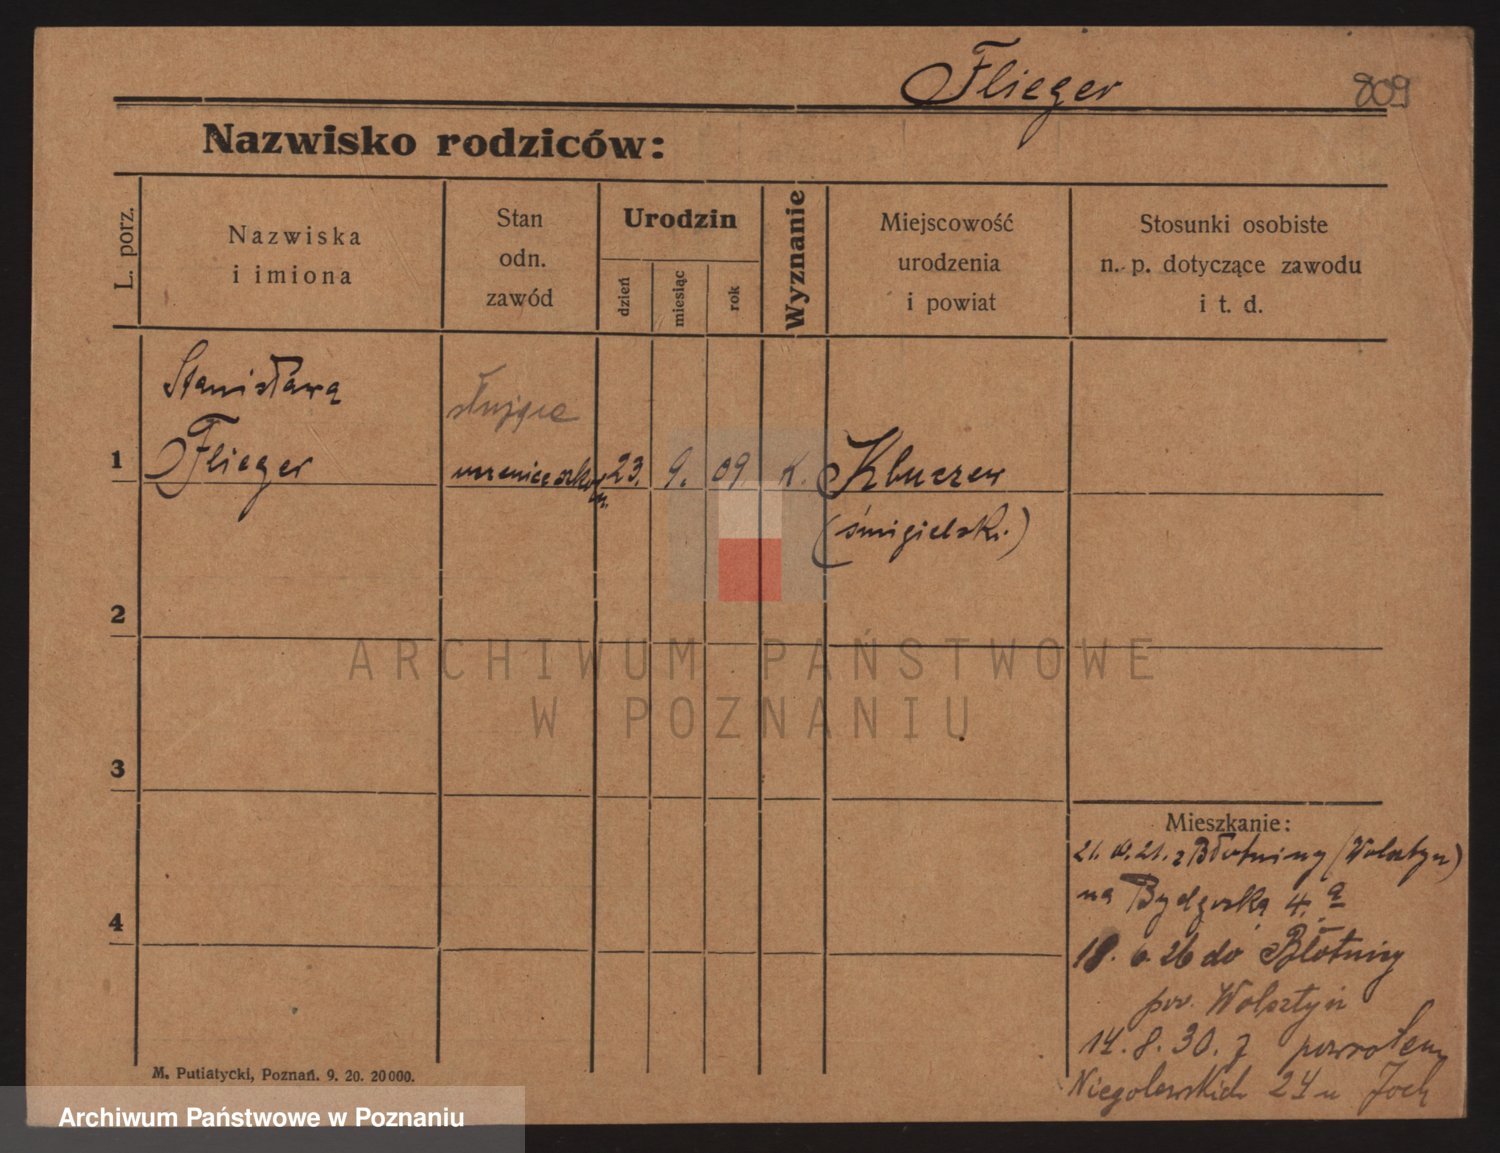 Flieger
809
Nazwisko rodziców:
L. porz.
Nazwiska
i imiona
Stan
odn.
zawód
Urodzin
dzień
miesiąc
rok
Wyznanie
Miejscowość
urodzenia
i powiat
Stosunki osobiste
n. p. dotyczące zawodu
i t. d.
Stanisława
służąca
1
Flieger
23.
9.
09
k.
(śmigielski.)
2
ARCHIWUM PAŃSTWOWE
W POZNANIU
3
Mieszkanie:
z Błotnicy (Wolsztyn)
na Bydgoską 4.a
4
18. 6 26 do Błotnicy
pow. Wolsztyn
14. 8. 30. z powrotem
Niegolewskich 24 u
M. Putiatycki, Poznań. 9. 20. 20000.
Archiwum Państwowe w Poznaniu